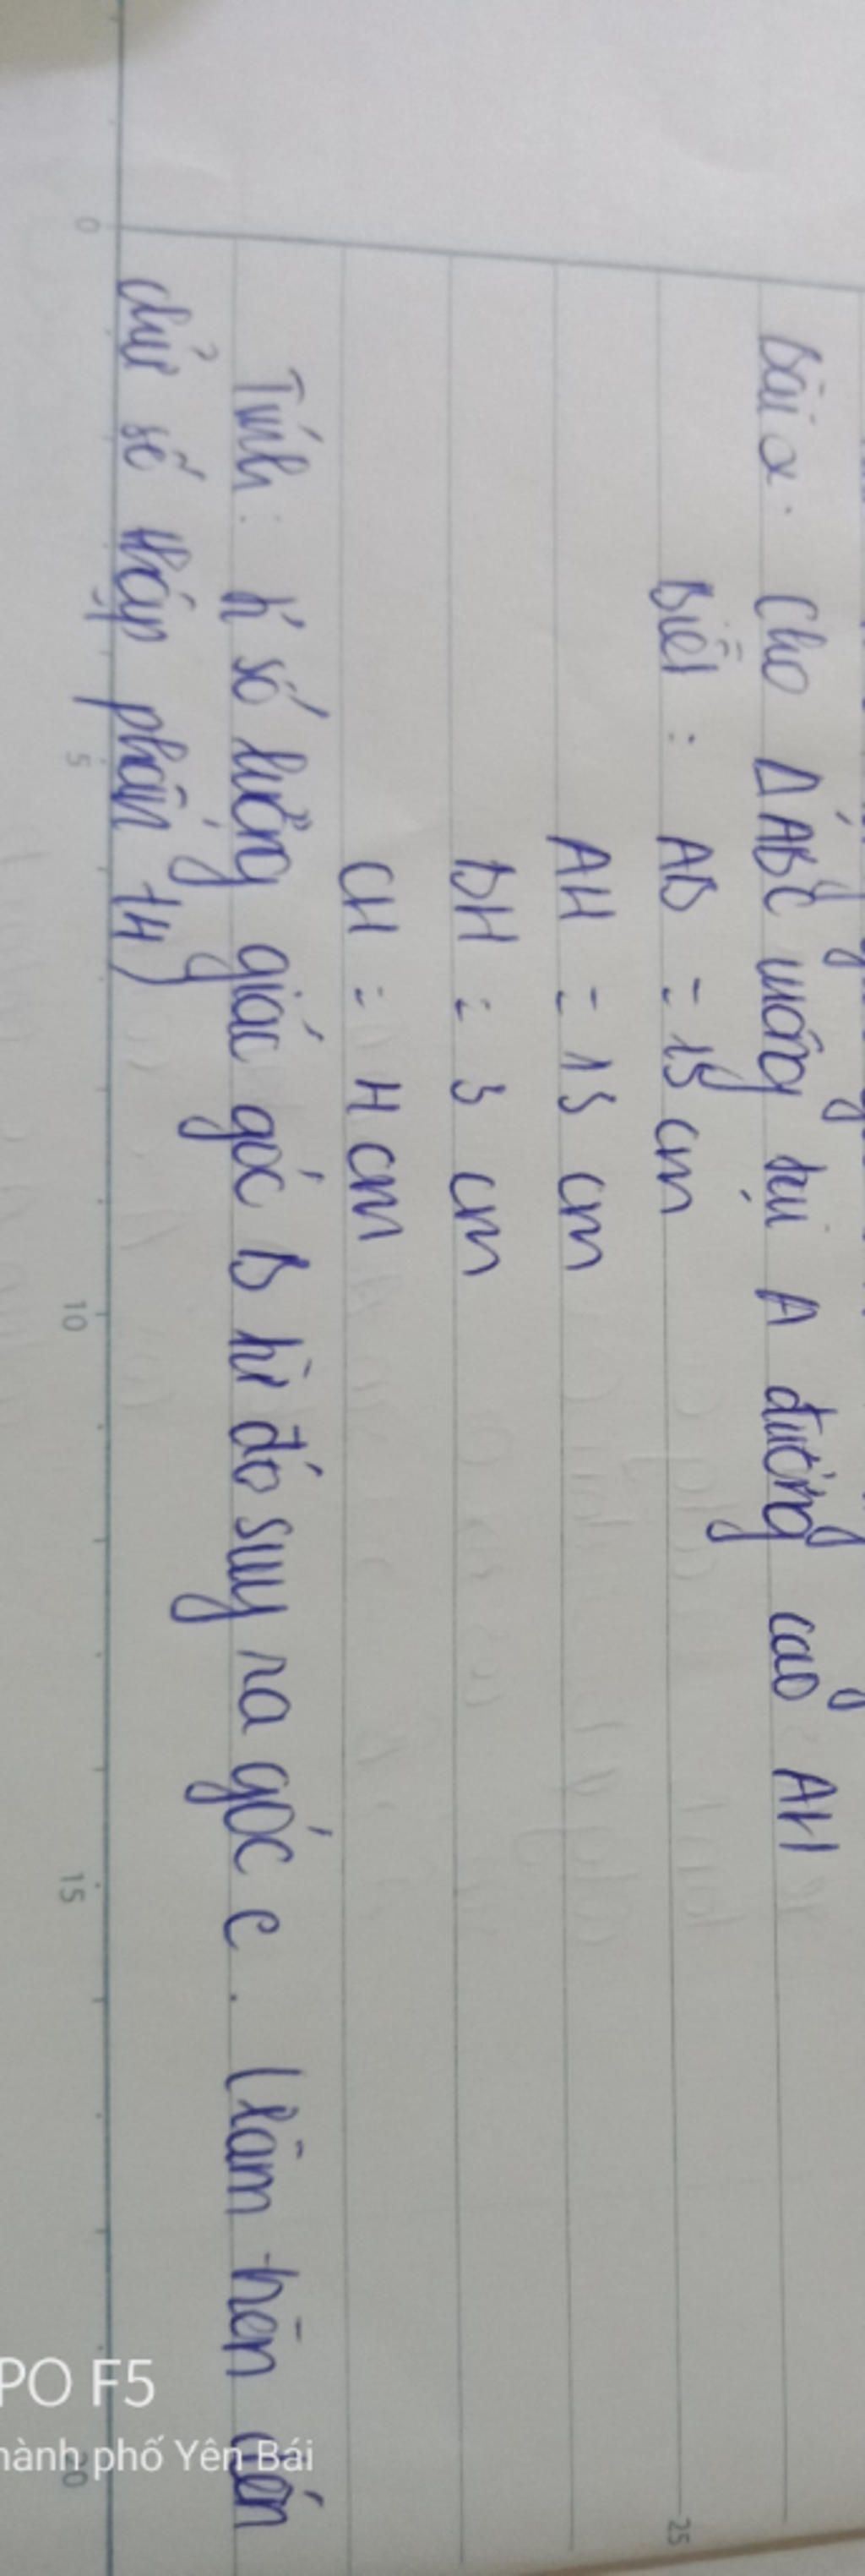 Bài 2. Cho Δ ABC vuông tại A đường cao AH
Biết : AB = 15 cm
AH = 13 cm
BH = 3 cm
CH = 4 cm
Tính: tỉ số lượng giác góc B từ đó suy ra góc C. (làm tròn đến
chữ số thập phân t4)
0
5
10
15
20
25
PO F5
hành phố Yên Bái